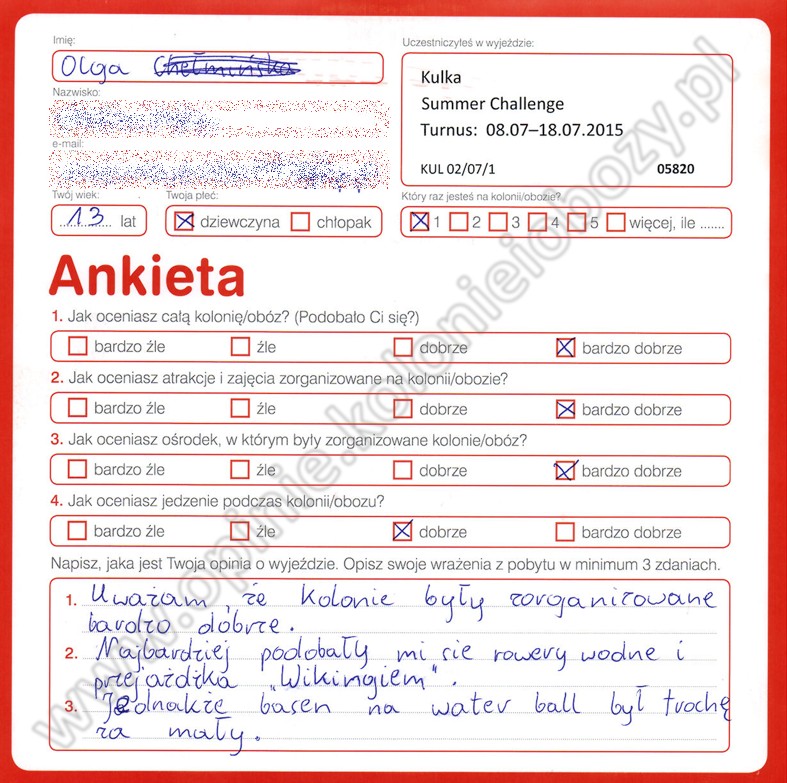 Imię:
Olga
Nazwisko:
e-mail:
Twój wiek:
13 lat
Twoja płeć:
dziewczyna chłopak
Uczestniczyłeś w wyjeździe:
Kulka
Summer Challenge
Turnus: 08.07–18.07.2015
KUL 02/07/1 05820
Który raz jesteś na kolonii/obozie?
1 2 3 4 5 więcej, ile .......
Ankieta
1. Jak oceniasz całą kolonię/obóz? (Podobało Ci się?)
bardzo źle źle dobrze bardzo dobrze
2. Jak oceniasz atrakcje i zajęcia zorganizowane na kolonii/obozie?
bardzo źle źle dobrze bardzo dobrze
3. Jak oceniasz ośrodek, w którym były zorganizowane kolonie/obóz?
bardzo źle źle dobrze bardzo dobrze
4. Jak oceniasz jedzenie podczas kolonii/obozu?
bardzo źle źle dobrze bardzo dobrze
Napisz, jaka jest Twoja opinia o wyjeździe. Opisz swoje wrażenia z pobytu w minimum 3 zdaniach.
1. Uważam, że kolonie były zorganizowane
bardzo dobrze.
2. Najbardziej podobały mi sie rowery wodne i
przejażdżka „Wikingiem".
3. Jednakże basen na water ball był trochę
za mały.
www.opinie.kolonieiobozy.pl